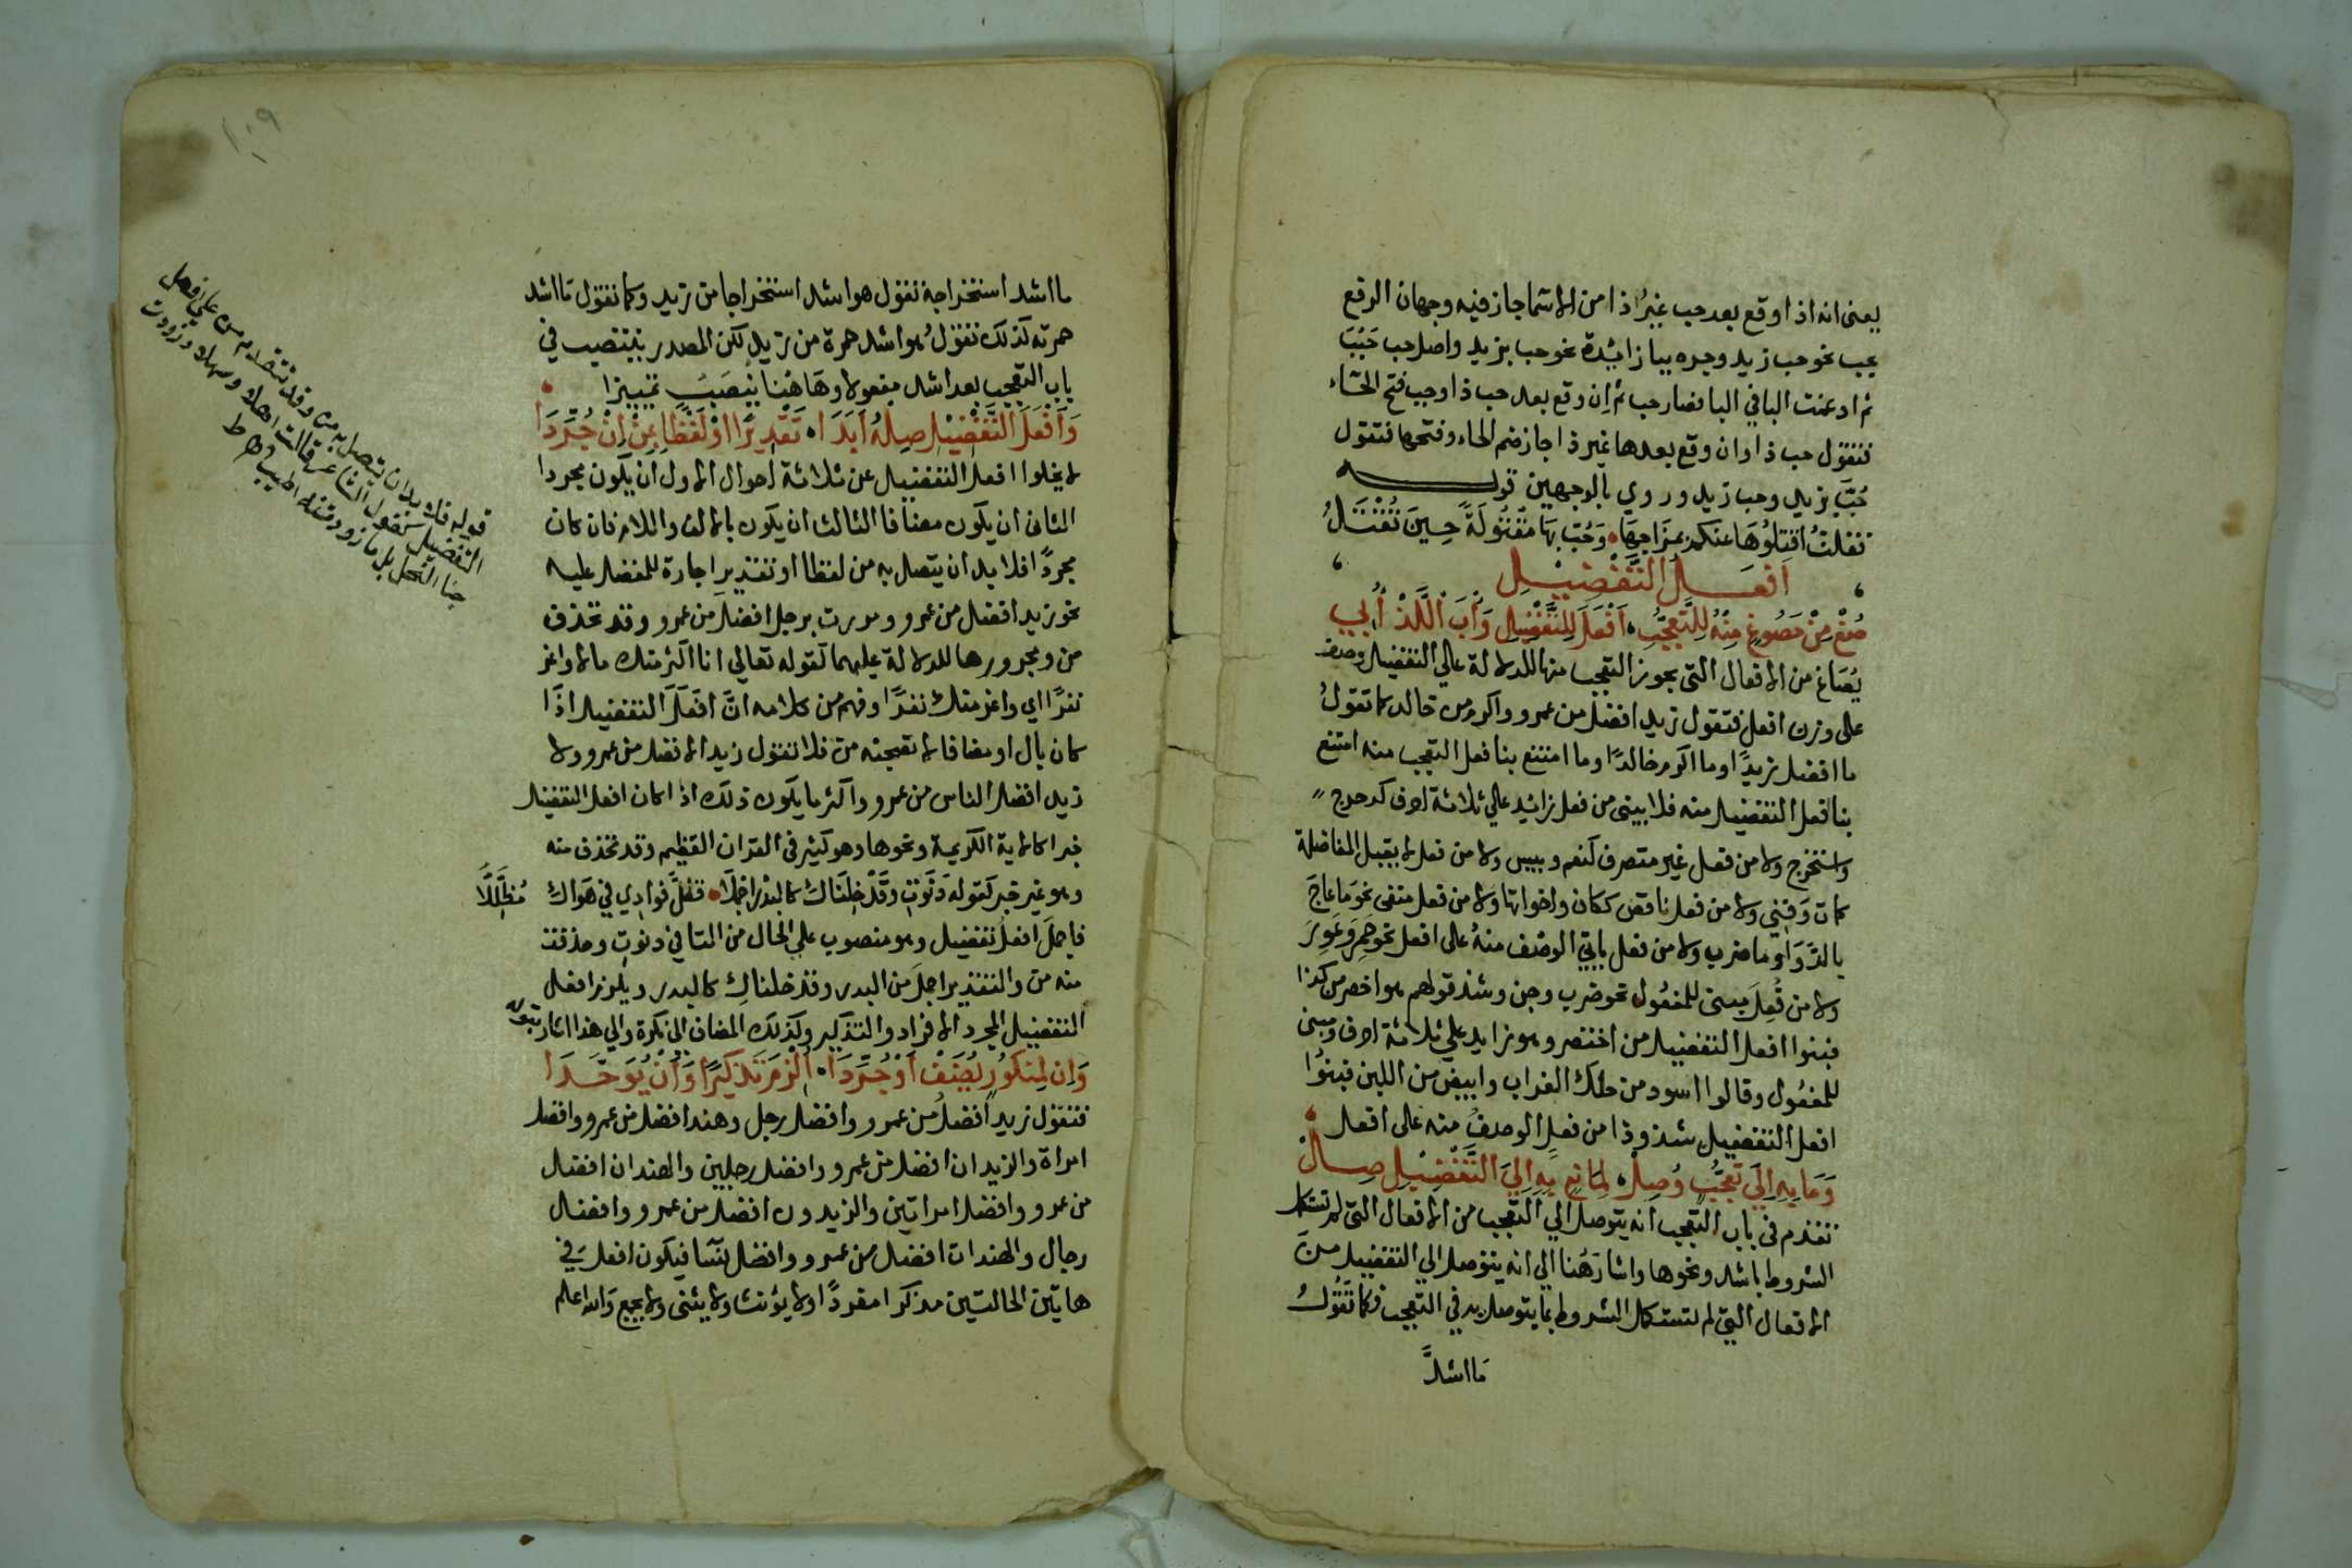 يعني انه اذا وقع بعد حب غير ذا من الاسما جاز فيه وجهان الرفع
بحب نحو حب زيد وجره ببا زائدة نحو حب بزيد واصل حب حَبُبَ
ثم ادغمت البا في البا فصار حب ثم ان وقع بعد حب ذا وجب فتح الحاء
فتقول حب ذا وان وقع بعدها غير ذا جاز ضم الحاء وفتحها فتقول
حُبَّ بزيد وحب زيد وروي بالوجهين قوله
فقلتُ اقتلوها عنكم بمزاجها وَحُبَّ بها مقتولةً حينَ تُقْتَلُ
افعل التفضيل
صُغْ مِنْ مَصُوغٍ مِنْهُ لِلتَّعَجُّبِ اَفْعَلَ لِلتَّفْضِيلِ وَأْبَ اللَّذْ أُبِي
يُصَاغ من الافعال التي يجوز التعجب منها للدلالة علي التفضيل وصف
على وزن افعل فتقول زيد افضل من عمرو واكرم من خالد كما تقولُ
ما افضل زيدًا وما اكرم خالدًا وما امتنع بنا فعل التعجب منه امتنع
بنا فعل التفضيل منه فلا يبنى من فعل زائد علي ثلاثة احرف كدحرج
واستخرج ولا من فعل غير متصرف كنعم وبيس ولا من فعل لا يقبل المفاضلة
كمات وَفَنِي ولا من فعل ناقص ككان واخواتها ولا من فعل منفى نحو ما عاجَ
بالدَّوَا وما ضرب ولا من فعل ياتي الوصف منهُ على افعل نحو حَمِرَ وَعَوِرَ
ولا من فُعِلَ مبنى للمفعُول نحو ضرب وجن وشذ قولهم هو اخصر من كذا
فبنوا افعل التفضيل من اختصر وهو زايد علي ثلاثة احرف ومبنى
للمفعُول وقالوا اسود من حلك الغراب وابيض من اللبن فبنوُا
افعل التفضيل شذوذا من فعلِ الوصفُ منه على افعل
وَمَا بِهِ اِلَى تَعَجُّبٍ وُصِلْ لِمَانِعٍ بِهِ اِلَي التَّفْضِيْلِ صِلْ
تقدم في باب التعجب انه يتوصل الي التعجب من الافعال التي لم تستكمل
الشروط باشد ونحوها واشار هُنا الي انه يتوصل الي التفضيل منَ
الافعال التي لم تستكمل الشروط بما يتوصل به في التعجب فكما تَقُولُ
مَا اشدَّ
ما اشد استخراجه تقول هو اشد استخراجا من زيد وكما تقول مَا اشد
حمرته كذلك تقولُ هو اشد حمرة من زيد لكن المصدر ينتصب في
باب التعجب بعد اشد مفعولا وهَاهُنا يُنصَبُ تمييزا
وَاَفْعَلَ التَّفْضِيْلِ صِلْهُ اَبَدَا تَقْدِيْرًا اوْ لَفْظًا بِمِنْ اِنْ جُرِّدَا
لا يخلوا افعل التفضيل عن ثلاثة احوال الاول ان يكون مجردا
الثانى ان يكون مضافا الثالث ان يكون بالالف واللام فان كان
مجردًا فلا بد ان يتصل به من لفظا او تقدير اجارة للمفضل عليه
نحو زيد افضل من عمرو ومررت برجل افضل من عمرو وقد تحذف
من ومجرورها للدلالة عليهما كقوله تعالي انا اكثر منك مالا واعز
نفرًا اي واعز منك نفرًا وفهم من كلامه انَّ افعَلَ التفضيل اذَا
كان بال او مضافا لا تصحبه من فلا تقول زيد الافضل من عمرو ولا
زيد افضل الناس من عمرو واكثر ما يكون ذلك اذا كان افعل التفضيل
خبرا كالاية الكريمة ونحوها وهو كثير في القران العظيم وقد تحذف منه
وهو غير خبر كقوله دَنَوْتِ وَقَدْ خِلْنَاكَ كالبدر اجْمَلَا فَظَلَّ فؤادِي في هَوَاكَ مُضَلَّلًا
فاجملَ افعل تفضيل وهو منصوب علي الحال من التا في دنوتِ وحذفت
منه من والتقدير اجملَ من البدر وقد خلناكِ كالبدر ويلزم افعل
التفضيل المجرد الافراد والتذكير وكذلك المضاف الى نكرة والي هذا اشار بقوله
وَاِن لِمَنكُورٍ يُضَفْ اَوْ جُرِّدَا اُلْزِمَ تَذْكِيْرًا وَأَنْ يُوَحَّدَا
فتقول زيد افضلُ من عمرو وافضل رجل وهند افضل من عمرو وافضل
امراة والزيدان افضل من عمرو وافضل رجلين والهندان افضل
من عمرو وافضل امراتين والزيدون افضل من عمرو وافضل
رجال والهندات افضل من عمرو وافضل نسَا فيكون افعلَ في
هاتين الحالتين مذكرا مفردًا ولا يؤنث ولا يثنى ولا يجمع وَالله اعلم
قوله فلا بد ان يتصل به من وقد تتقدم من علي افعل
التفضيل كقول الشاعر فقالت اهلا وسهلا وزودت
جنا النحل بل ما زودت منه اطيب
١٠٩